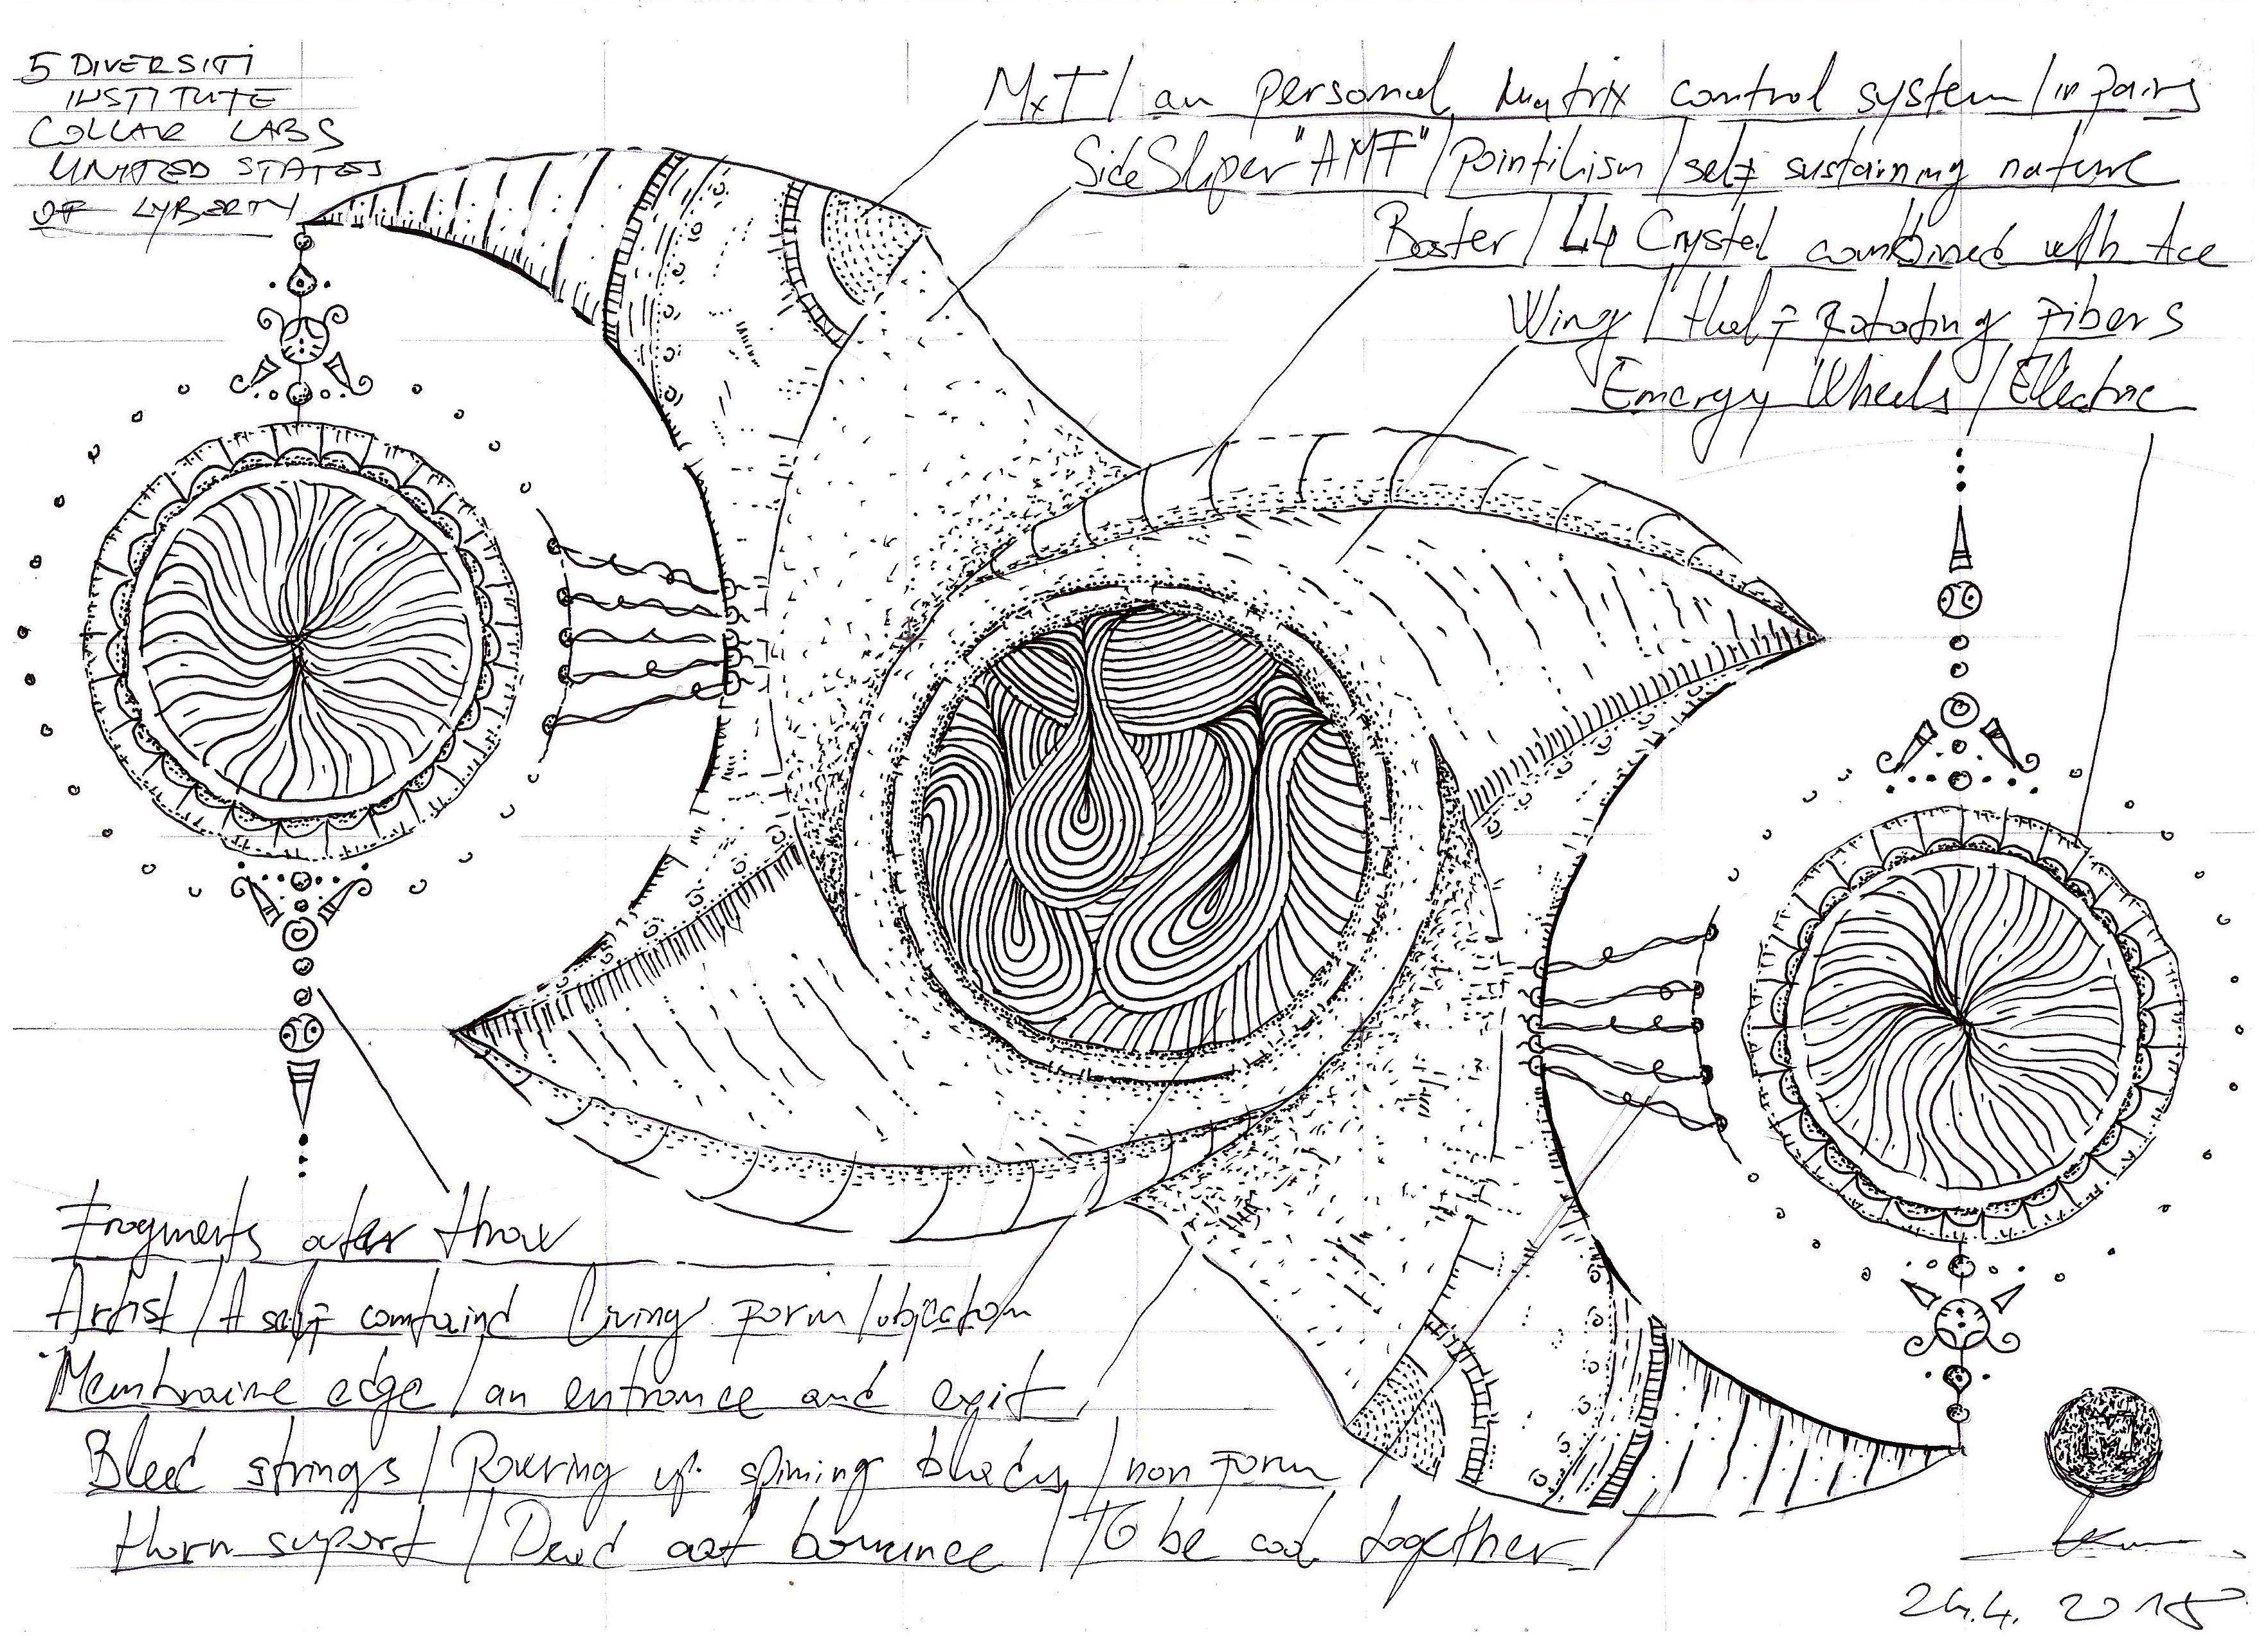 5 DIVERSITI
INSTITUTE
COLLAR LABS
UNITED STATES
OF LYBERTY
MxT / an personal Matrix control system / in pairs
Side Sliper "AMF" / Pointilism / self sustaining nature
Boster / L4 Crystel combined with Ace
Wing / Rotating Fibers
Emergy Wheels / Ellectric
Fragments outer
Artist / A self containd living form /
Membraine edge / an entrance and exit
strings / up spining / non form
Horn suport / / To be cool together /
M
24.4. 2015